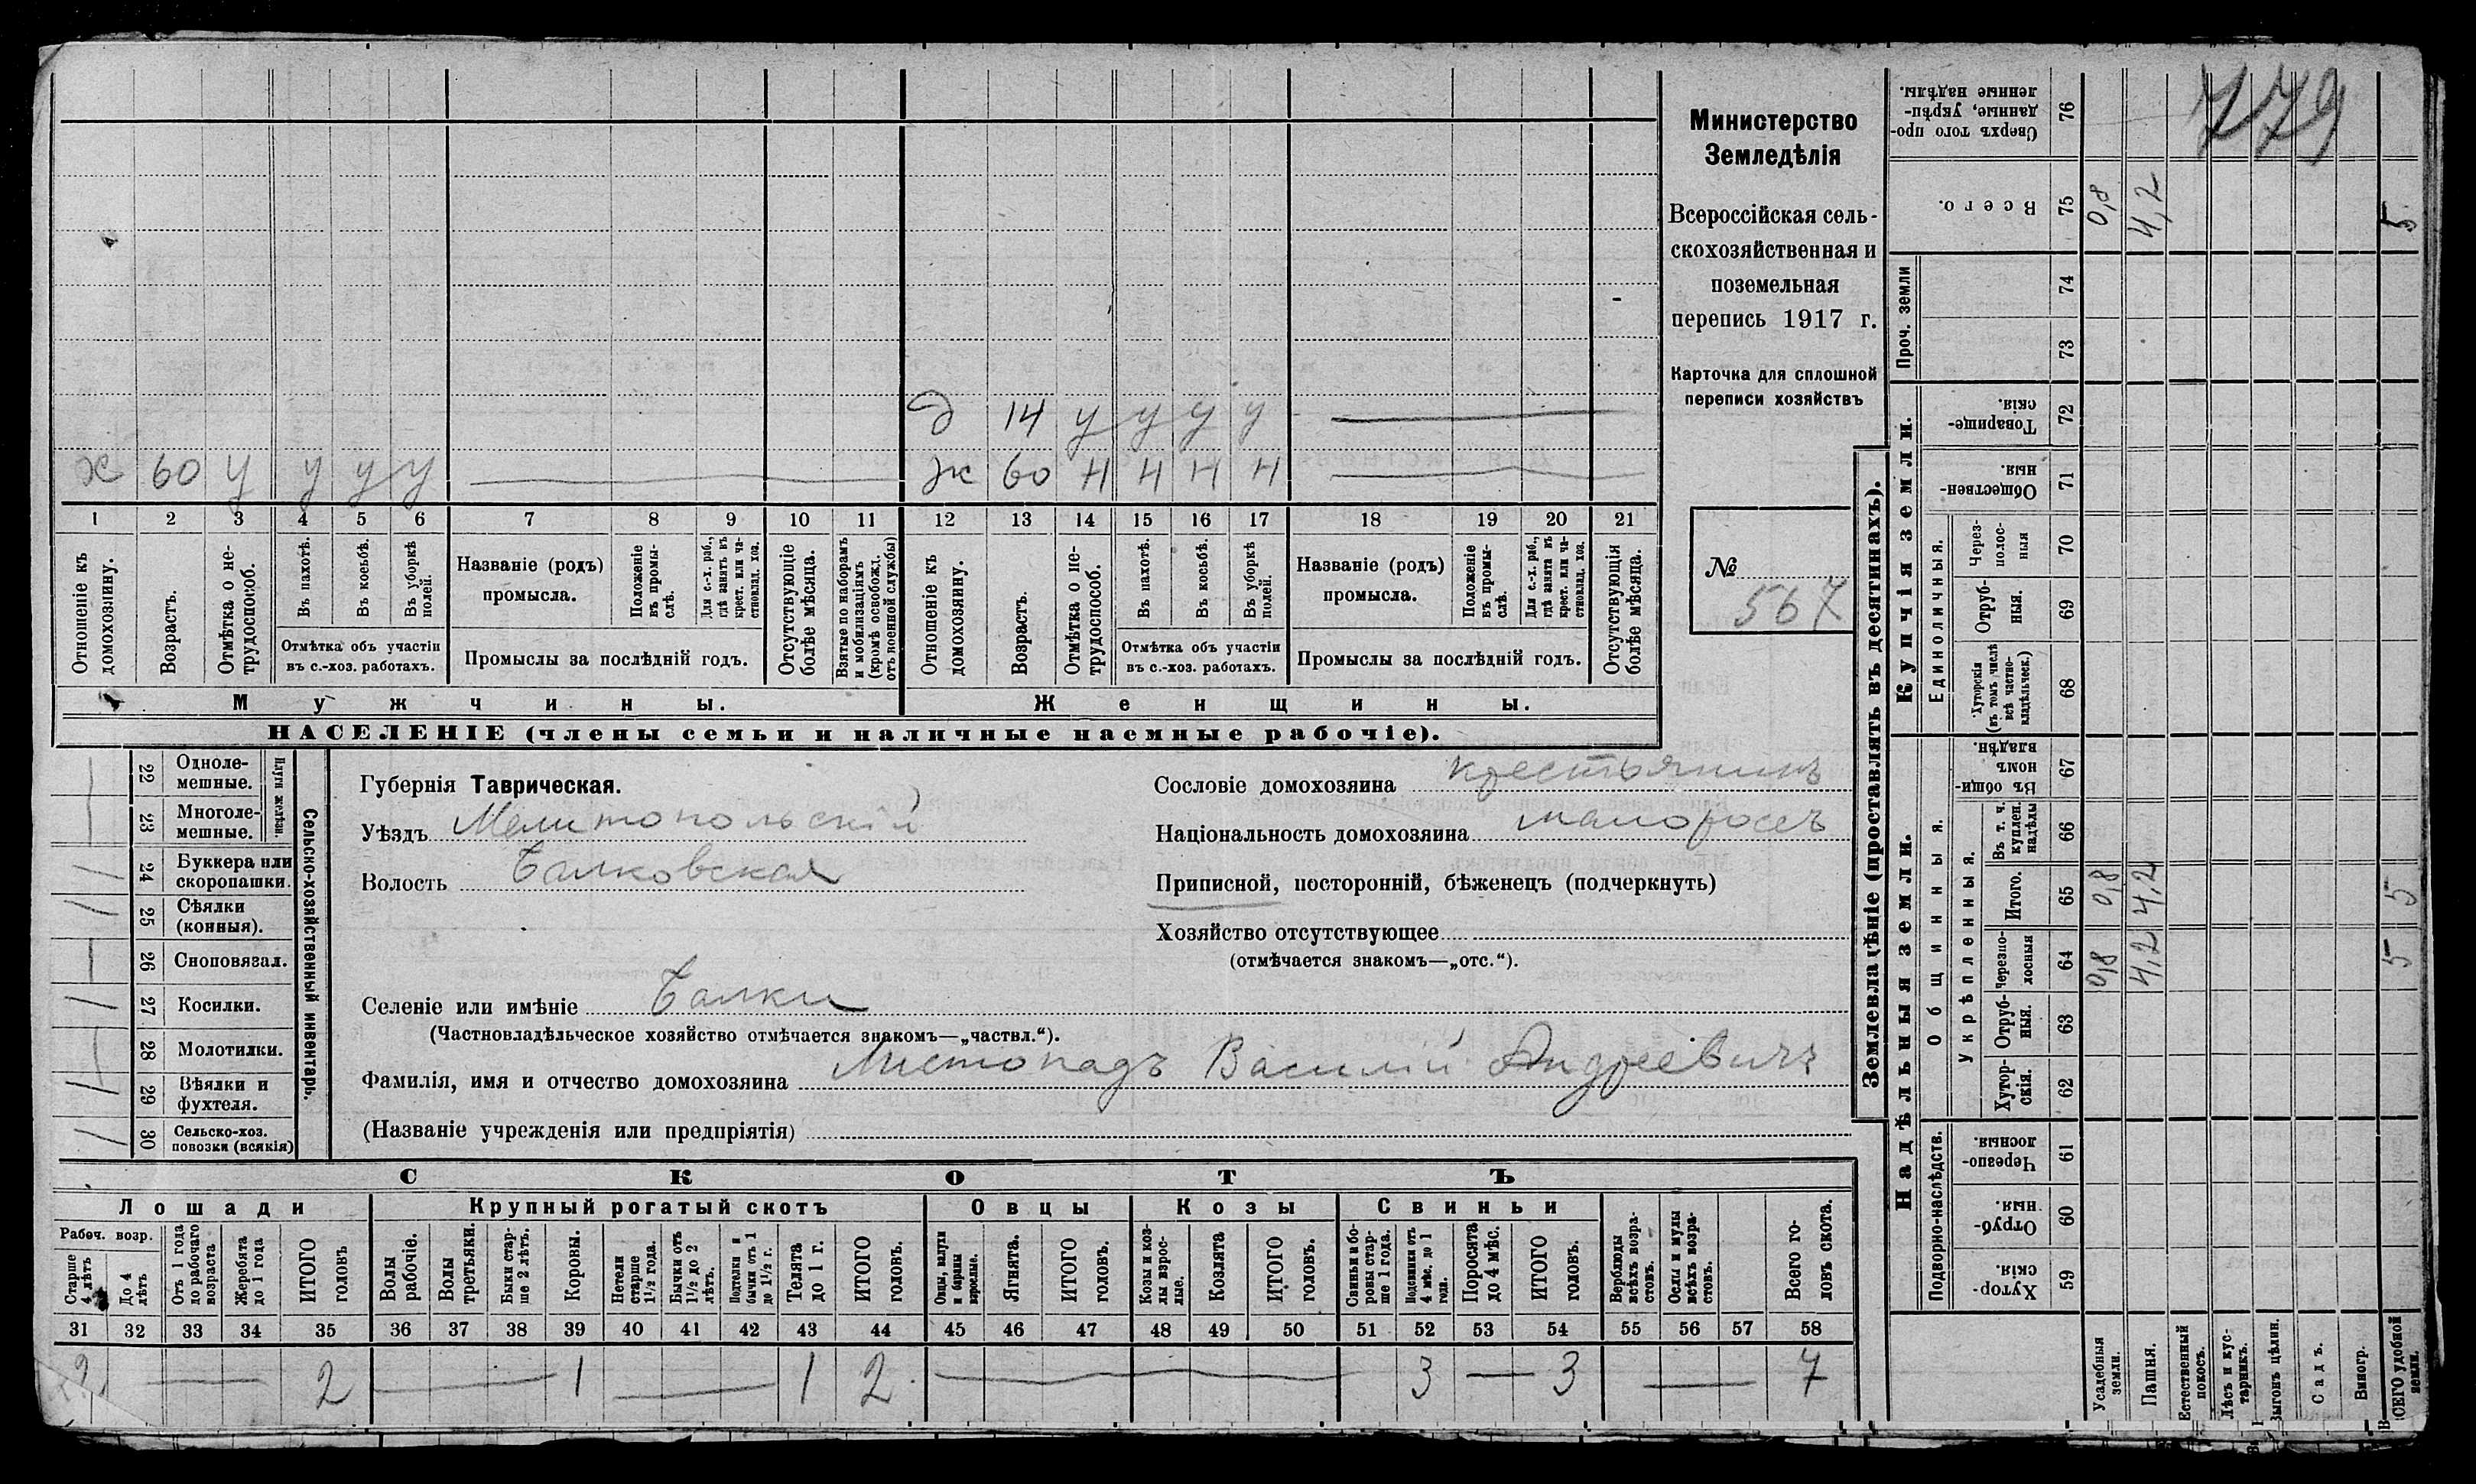 779
Министерство
Земледѣлія
Всероссійская сель-
скохозяйственная и
поземельная
перепись 1917 г.
Карточка для сплошной
переписи хозяйствъ
№ 567
д 14 у у у у
х 60 у у у у
ж 60 н н н н
1 2 3 4 5 6 7 8 9 10 11 12 13 14 15 16 17 18 19 20 21
Отношеніе къ домохозяину.
Возрастъ.
Отмѣтка о не-трудоспособ.
Въ пахотѣ.
Въ косьбѣ.
Въ уборкѣ полей.
Отмѣтка объ участіи
въ с.-хоз. работахъ.
Названіе (родъ)
промысла.
Положеніе въ промы-слѣ.
Для с.-х. раб., гдѣ занятъ въ крест. или ча-стновлад. хоз.
Промыслы за послѣдній годъ.
Отсутствующіе болѣе мѣсяца.
Взятые по наборамъ и мобилизаціямъ (кромѣ освобожд. отъ военной службы)
Отношеніе къ домохозяину.
Возрастъ.
Отмѣтка о не-трудоспособ.
Въ пахотѣ.
Въ косьбѣ.
Въ уборкѣ полей.
Отмѣтка объ участіи
въ с.-хоз. работахъ.
Названіе (родъ)
промысла.
Положеніе въ промы-слѣ.
Для с.-х. раб., гдѣ занята въ крест. или ча-стновлад. хоз.
Промыслы за послѣдній годъ.
Отсутствующія болѣе мѣсяца.
Мужчины.
Женщины.
НАСЕЛЕНІЕ (члены семьи и наличные наемные рабочіе).
Сельско-хозяйственный инвентарь.
Плуги желѣзн.
22 Однолемешные.
23 Многолемешные.
24 Буккера или скоропашки.
25 Сѣялки (конныя).
26 Сноповязал.
27 Косилки.
28 Молотилки.
29 Вѣялки и фухтеля.
30 Сельско-хоз. повозки (всякія)
1
1
1
Губернія Таврическая.
Уѣздъ Мелитопольскій
Волость Балковская
Селеніе или имѣніе Балки
(Частновладѣльческое хозяйство отмѣчается знакомъ—„частвл.“).
Фамилія, имя и отчество домохозяина Листопадъ Василій Андреевичъ
(Названіе учрежденія или предпріятія)
Сословіе домохозяина крестьянинъ
Національность домохозяина малороссъ
Приписной, посторонній, бѣженецъ (подчеркнуть)
Хозяйство отсутствующее
(отмѣчается знакомъ—„отс.“).
СКОТЪ
Лошади
Крупный рогатый скотъ
Овцы
Козы
Свиньи
Рабоч. возр.
Старше 4 лѣтъ
До 4 лѣтъ
Отъ 1 года до рабочаго возраста
Жеребята до 1 года
ИТОГО головъ
Волы рабочіе.
Волы третьяки.
Быки стар-ше 2 лѣтъ.
Коровы.
Нетели старше 1½ года.
Бычки отъ 1½ до 2 лѣтъ.
Подтелки и бычки отъ 1 до 1½ г.
Телята до 1 г.
ИТОГО головъ.
Овцы, валухи и бараны взрослые.
Ягнята.
ИТОГО головъ.
Козы и коз-лы взрос-лые.
Козлята
ИТОГО головъ.
Свиньи и бо-ровы стар-ше 1 года.
Подсвинки отъ 4 мѣс. до 1 года.
Поросята до 4 мѣс.
ИТОГО головъ.
Верблюды всѣхъ возра-стовъ.
Ослы и мулы всѣхъ возра-стовъ.
Всего го-ловъ скота.
31 32 33 34 35 36 37 38 39 40 41 42 43 44 45 46 47 48 49 50 51 52 53 54 55 56 57 58
2 2 1 1 2 3 3 7
Землевладѣніе (проставлять въ десятинахъ).
Купчія земли.
Надѣльныя земли.
Проч. земли
Сверхъ того про-данные, укрѣп-ленные надѣлы. 76
Всего. 75 0,8 4,2 5
74
73
Товарище-скія. 72
Обществен-ныя. 71
Единоличныя.
Через-полос-ныя 70
Отруб-ныя. 69
Хуторскія (въ томъ числѣ всѣ частно-владѣльческ.) 68
Общинныя.
Въ общи-номъ владѣн. 67
Укрѣпленныя.
Въ т. ч. куплен. надѣлы 66
Итого. 65 0,8 4,2 5
Черезпо-лосныя 64 0,8 4,2 5
Отруб-ныя. 63
Хутор-скія. 62
Подворно-наслѣдств.
Черезпо-лосныя. 61
Отруб-ныя. 60
Хутор-скія. 59
Усадебныя земли.
Пашня.
Естественный покосъ.
Лѣсъ и кус-тарникъ.
Выгонъ цѣлин.
Садъ.
Виногр.
ВСЕГО удобной земли.